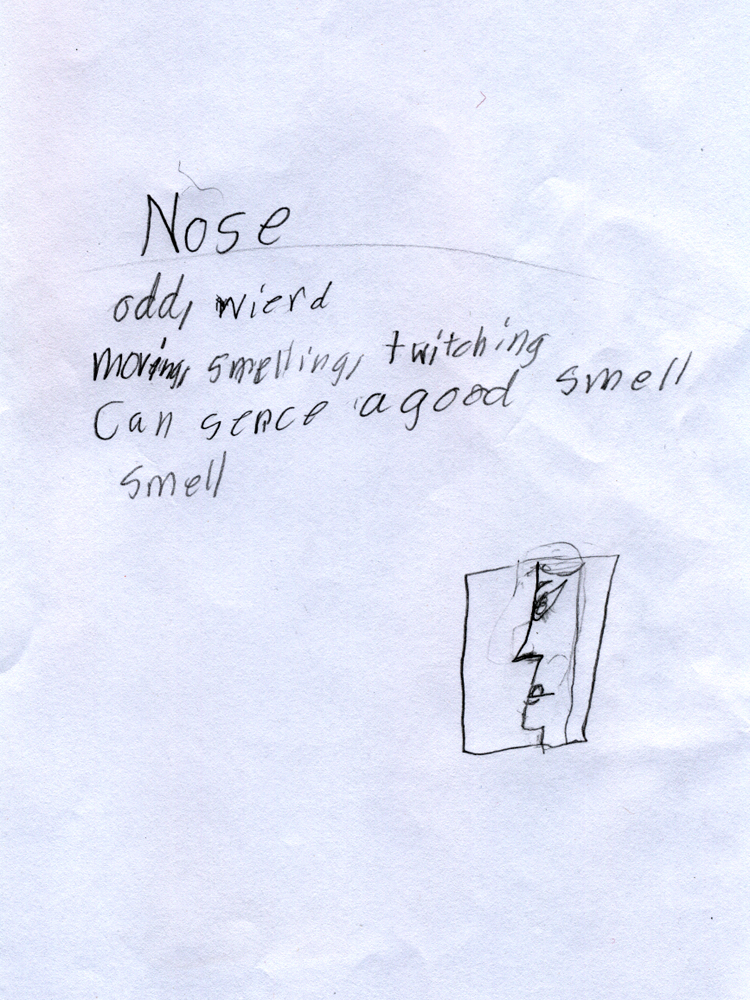 Nose
odd, wierd
moving, smelling, twitching
Can sence a good smell
smell